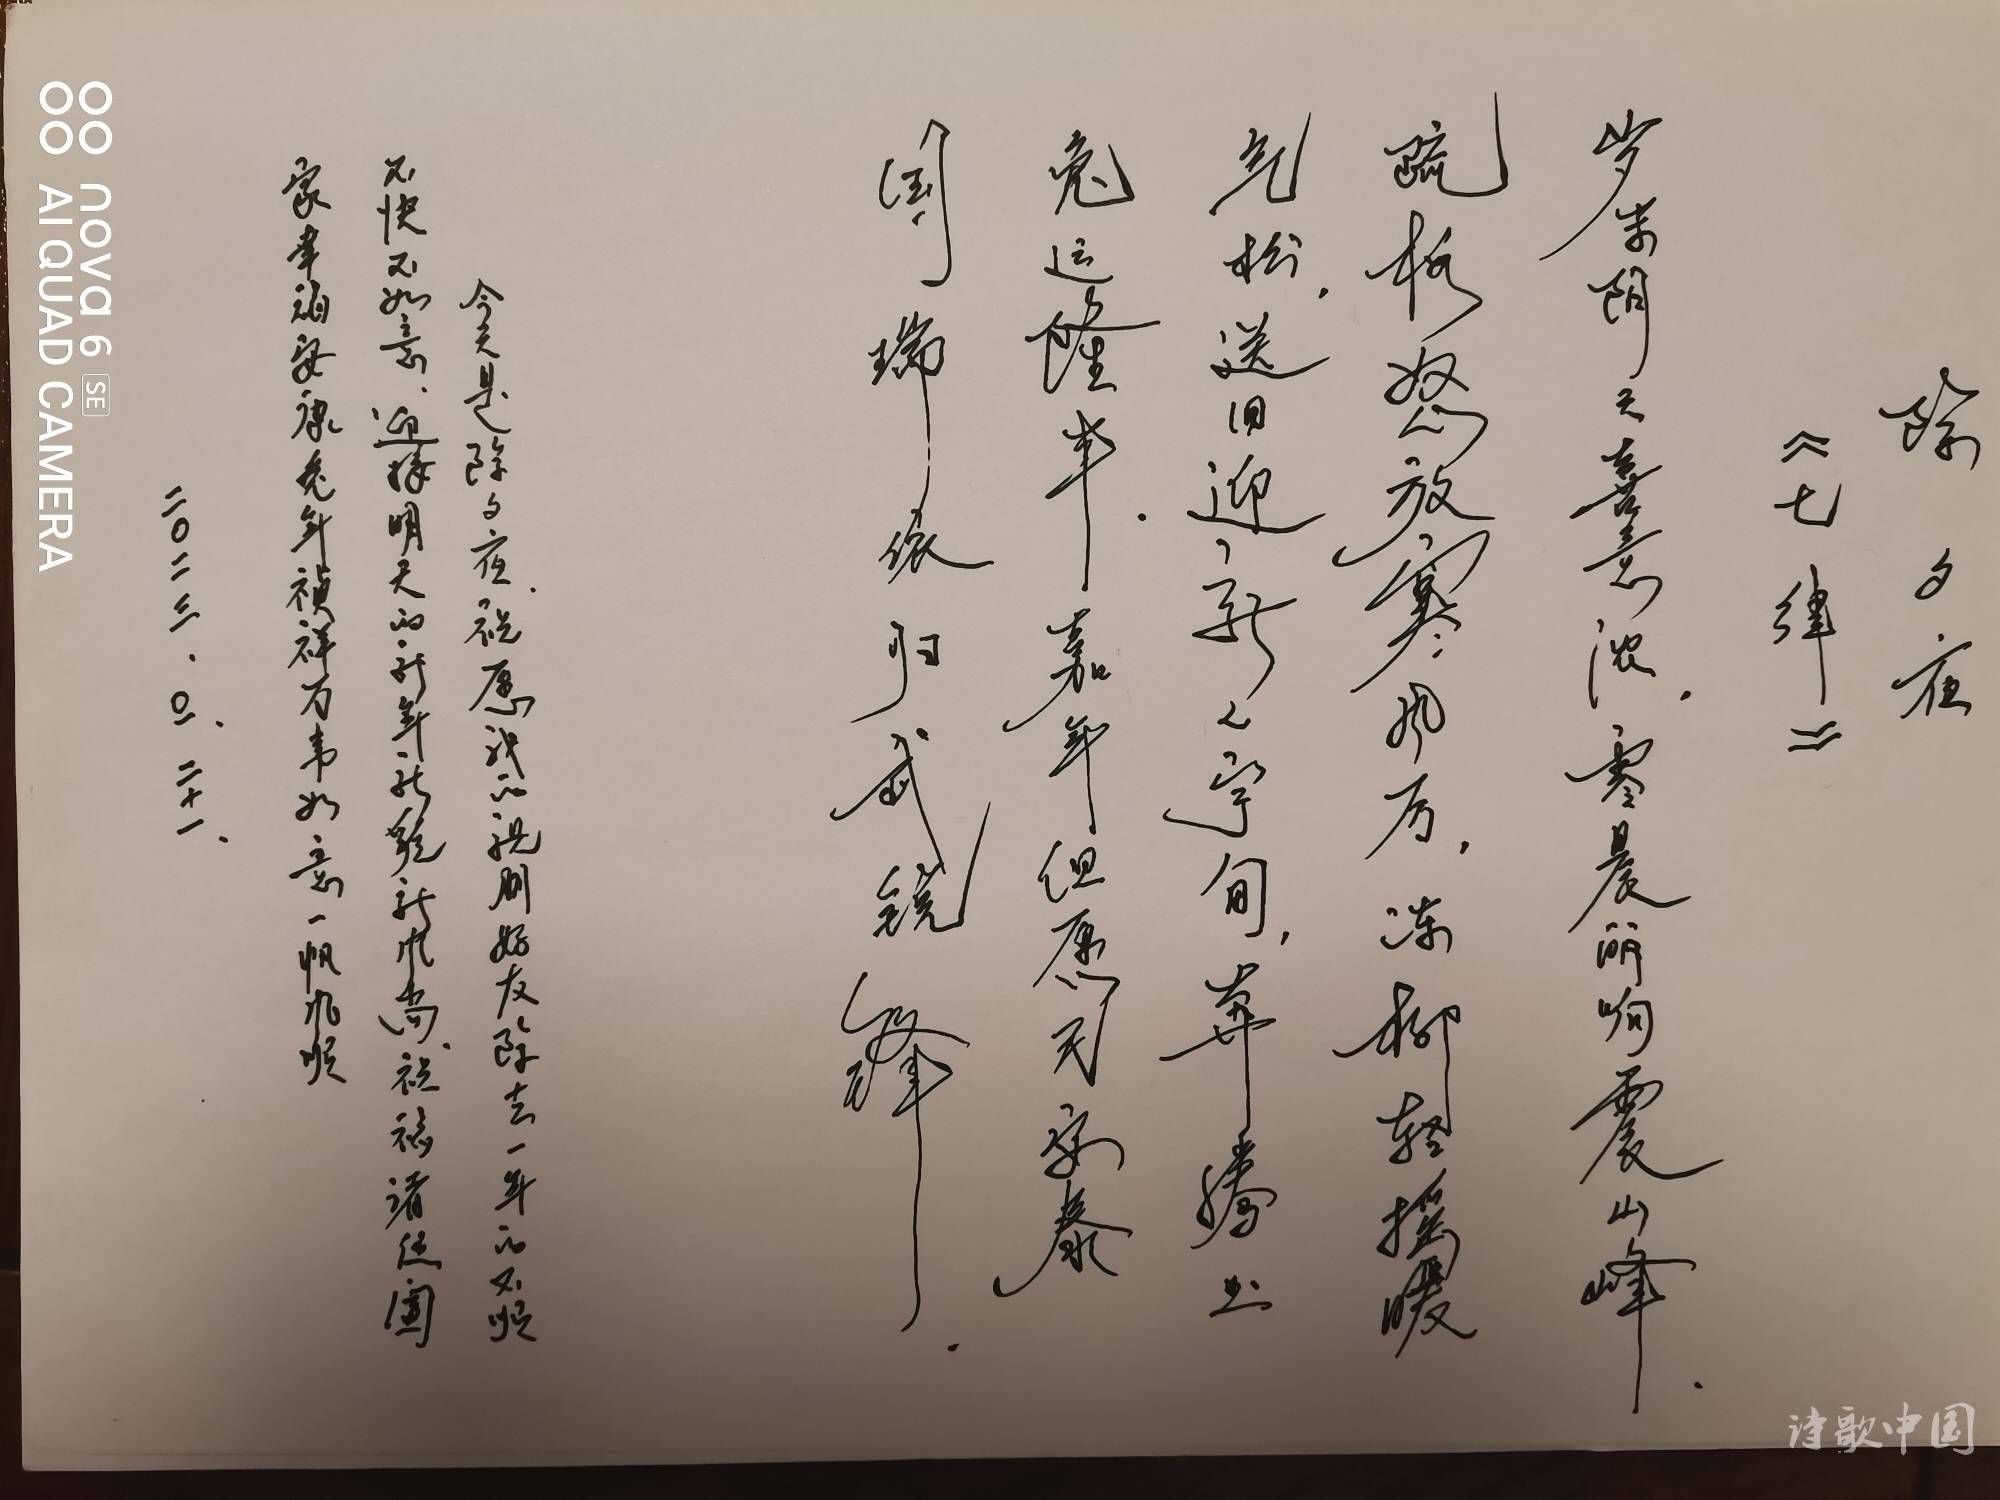 除夕夜
《七律》
岁末阴云喜意浓，零晨的响震山峰．
疏梅怒放寒风厉，冻柳轻摇暖
气松，送旧迎新人字旬，奔腾出
兔运隆丰．嘉年但愿民安泰
国瑞依归武锐锋．
今天是除夕夜．祝愿我的亲朋好友除去一年的不顺
不快不如意．迎接明天的新年新貌新风尚．祝福诸位阖
家幸福安康兔年祯祥万事如意一帆风顺
二〇二三．〇一．二十一．
nova 6 SE
AI QUAD CAMERA
诗歌中国